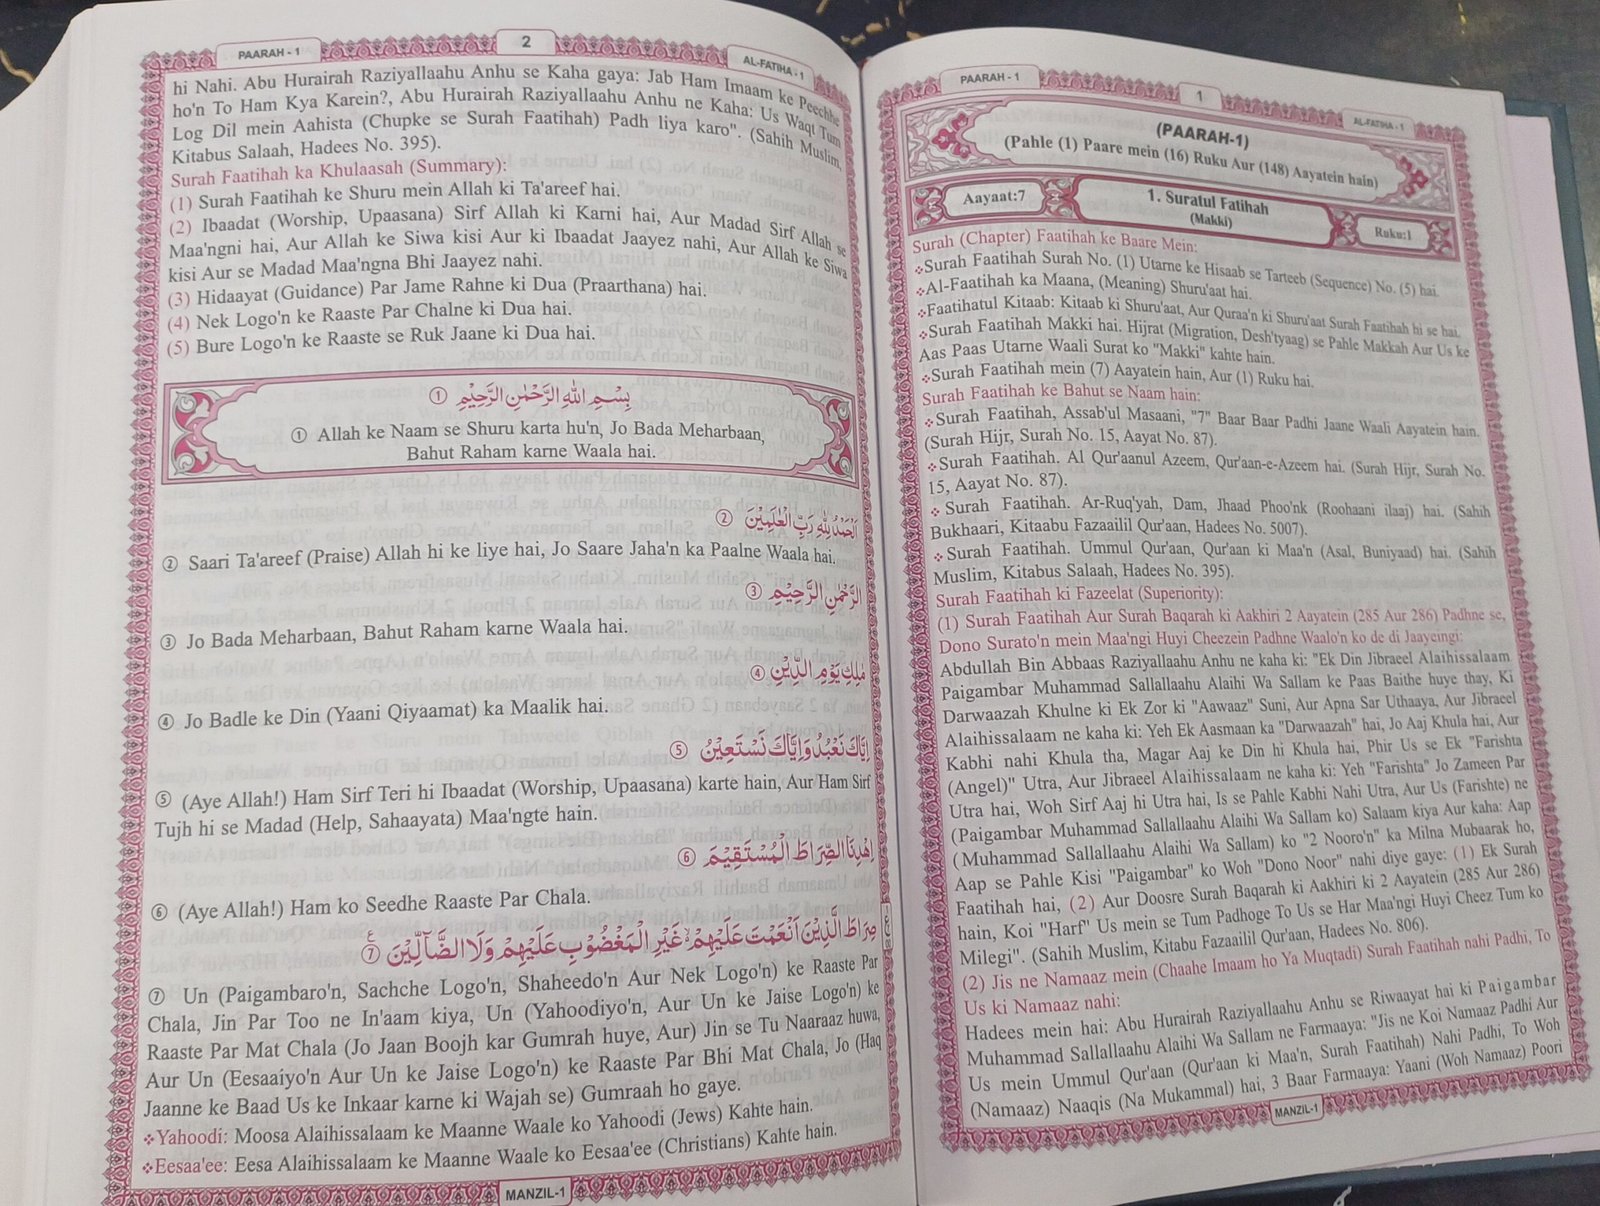 PAARAH - 1
1
AL-FATIHA - 1
(PAARAH-1)
(Pahle (1) Paare mein (16) Ruku Aur (148) Aayatein hain)
Aayaat:7
1. Suratul Fatihah
(Makki)
Ruku:1
Surah (Chapter) Faatihah ke Baare Mein:
❖Surah Faatihah Surah No. (1) Utarne ke Hisaab se Tarteeb (Sequence) No. (5) hai.
❖Al-Faatihah ka Maana, (Meaning) Shuru'aat hai.
❖Faatihatul Kitaab: Kitaab ki Shuru'aat, Aur Quraa'n ki Shuru'aat Surah Faatihah hi se hai.
❖Surah Faatihah Makki hai. Hijrat (Migration, Desh'tyaag) se Pahle Makkah Aur Us ke
Aas Paas Utarne Waali Surat ko "Makki" kahte hain.
❖Surah Faatihah mein (7) Aayatein hain, Aur (1) Ruku hai.
Surah Faatihah ke Bahut se Naam hain:
❖Surah Faatihah, Assab'ul Masaani, "7" Baar Baar Padhi Jaane Waali Aayatein hain.
(Surah Hijr, Surah No. 15, Aayat No. 87).
❖Surah Faatihah. Al Qur'aanul Azeem, Qur'aan-e-Azeem hai. (Surah Hijr, Surah No.
15, Aayat No. 87).
❖Surah Faatihah. Ar-Ruq'yah, Dam, Jhaad Phoo'nk (Roohaani ilaaj) hai. (Sahih
Bukhaari, Kitaabu Fazaailil Qur'aan, Hadees No. 5007).
❖Surah Faatihah. Ummul Qur'aan, Qur'aan ki Maa'n (Asal, Buniyaad) hai. (Sahih
Muslim, Kitabus Salaah, Hadees No. 395).
Surah Faatihah ki Fazeelat (Superiority):
(1) Surah Faatihah Aur Surah Baqarah ki Aakhiri 2 Aayatein (285 Aur 286) Padhne se,
Dono Surato'n mein Maa'ngi Huyi Cheezein Padhne Waalo'n ko de di Jaayeingi:
Abdullah Bin Abbaas Raziyallaahu Anhu ne kaha ki: "Ek Din Jibraeel Alaihissalaam
Paigambar Muhammad Sallallaahu Alaihi Wa Sallam ke Paas Baithe huye thay, Ki
Darwaazah Khulne ki Ek Zor ki "Aawaaz" Suni, Aur Apna Sar Uthaaya, Aur Jibraeel
Alaihissalaam ne kaha ki: Yeh Ek Aasmaan ka "Darwaazah" hai, Jo Aaj Khula hai, Aur
Kabhi nahi Khula tha, Magar Aaj ke Din hi Khula hai, Phir Us se Ek "Farishta
(Angel)" Utra, Aur Jibraeel Alaihissalaam ne kaha ki: Yeh "Farishta" Jo Zameen Par
Utra hai, Woh Sirf Aaj hi Utra hai, Is se Pahle Kabhi Nahi Utra, Aur Us (Farishte) ne
(Paigambar Muhammad Sallallaahu Alaihi Wa Sallam ko) Salaam kiya Aur kaha: Aap
(Muhammad Sallallaahu Alaihi Wa Sallam) ko "2 Nooro'n" ka Milna Mubaarak ho,
Aap se Pahle Kisi "Paigambar" ko Woh "Dono Noor" nahi diye gaye: (1) Ek Surah
Faatihah hai, (2) Aur Doosre Surah Baqarah ki Aakhiri ki 2 Aayatein (285 Aur 286)
hain, Koi "Harf" Us mein se Tum Padhoge To Us se Har Maa'ngi Huyi Cheez Tum ko
Milegi". (Sahih Muslim, Kitabu Fazaailil Qur'aan, Hadees No. 806).
(2) Jis ne Namaaz mein (Chaahe Imaam ho Ya Muqtadi) Surah Faatihah nahi Padhi, To
Us ki Namaaz nahi:
Hadees mein hai: Abu Hurairah Raziyallaahu Anhu se Riwaayat hai ki Paigambar
Muhammad Sallallaahu Alaihi Wa Sallam ne Farmaaya: "Jis ne Koi Namaaz Padhi Aur
Us mein Ummul Qur'aan (Qur'aan ki Maa'n, Surah Faatihah) Nahi Padhi, To Woh
(Namaaz) Naaqis (Na Mukammal) hai, 3 Baar Farmaaya: Yaani (Woh Namaaz) Poori
MANZIL-1
PAARAH - 1
2
AL-FATIHA - 1
hi Nahi. Abu Hurairah Raziyallaahu Anhu se Kaha gaya: Jab Ham Imaam ke Peechhe
ho'n To Ham Kya Karein?, Abu Hurairah Raziyallaahu Anhu ne Kaha: Us Waqt Tum
Log Dil mein Aahista (Chupke se Surah Faatihah) Padh liya karo". (Sahih Muslim,
Kitabus Salaah, Hadees No. 395).
Surah Faatihah ka Khulaasah (Summary):
(1) Surah Faatihah ke Shuru mein Allah ki Ta'areef hai.
(2) Ibaadat (Worship, Upaasana) Sirf Allah ki Karni hai, Aur Madad Sirf Allah se
Maa'ngni hai, Aur Allah ke Siwa kisi Aur ki Ibaadat Jaayez nahi, Aur Allah ke Siwa
kisi Aur se Madad Maa'ngna Bhi Jaayez nahi.
(3) Hidaayat (Guidance) Par Jame Rahne ki Dua (Praarthana) hai.
(4) Nek Logo'n ke Raaste Par Chalne ki Dua hai.
(5) Bure Logo'n ke Raaste se Ruk Jaane ki Dua hai.
بِسْمِ اللهِ الرَّحْمٰنِ الرَّحِيْمِ ①
① Allah ke Naam se Shuru karta hu'n, Jo Bada Meharbaan,
Bahut Raham karne Waala hai.
اَلْحَمْدُ لِلّٰهِ رَبِّ الْعٰلَمِيْنَ ②
② Saari Ta'areef (Praise) Allah hi ke liye hai, Jo Saare Jaha'n ka Paalne Waala hai.
الرَّحْمٰنِ الرَّحِيْمِ ③
③ Jo Bada Meharbaan, Bahut Raham karne Waala hai.
مٰلِكِ يَوْمِ الدِّيْنِ ④
④ Jo Badle ke Din (Yaani Qiyaamat) ka Maalik hai.
اِيَّاكَ نَعْبُدُ وَاِيَّاكَ نَسْتَعِيْنُ ⑤
⑤ (Aye Allah!) Ham Sirf Teri hi Ibaadat (Worship, Upaasana) karte hain, Aur Ham Sirf
Tujh hi se Madad (Help, Sahaayata) Maa'ngte hain.
اِهْدِنَا الصِّرَاطَ الْمُسْتَقِيْمَ ⑥
⑥ (Aye Allah!) Ham ko Seedhe Raaste Par Chala.
صِرَاطَ الَّذِيْنَ اَنْعَمْتَ عَلَيْهِمْ غَيْرِ الْمَغْضُوْبِ عَلَيْهِمْ وَلَا الضَّآلِّيْنَ ⑦
⑦ Un (Paigambaro'n, Sachche Logo'n, Shaheedo'n Aur Nek Logo'n) ke Raaste Par
Chala, Jin Par Too ne In'aam kiya, Un (Yahoodiyo'n, Aur Un ke Jaise Logo'n) ke
Raaste Par Mat Chala (Jo Jaan Boojh kar Gumrah huye, Aur) Jin se Tu Naaraaz huwa,
Aur Un (Eesaaiyo'n Aur Un ke Jaise Logo'n) ke Raaste Par Bhi Mat Chala, Jo (Haq
Jaanne ke Baad Us ke Inkaar karne ki Wajah se) Gumraah ho gaye.
❖Yahoodi: Moosa Alaihissalaam ke Maanne Waale ko Yahoodi (Jews) Kahte hain.
❖Eesaa'ee: Eesa Alaihissalaam ke Maanne Waale ko Eesaa'ee (Christians) Kahte hain.
MANZIL-1